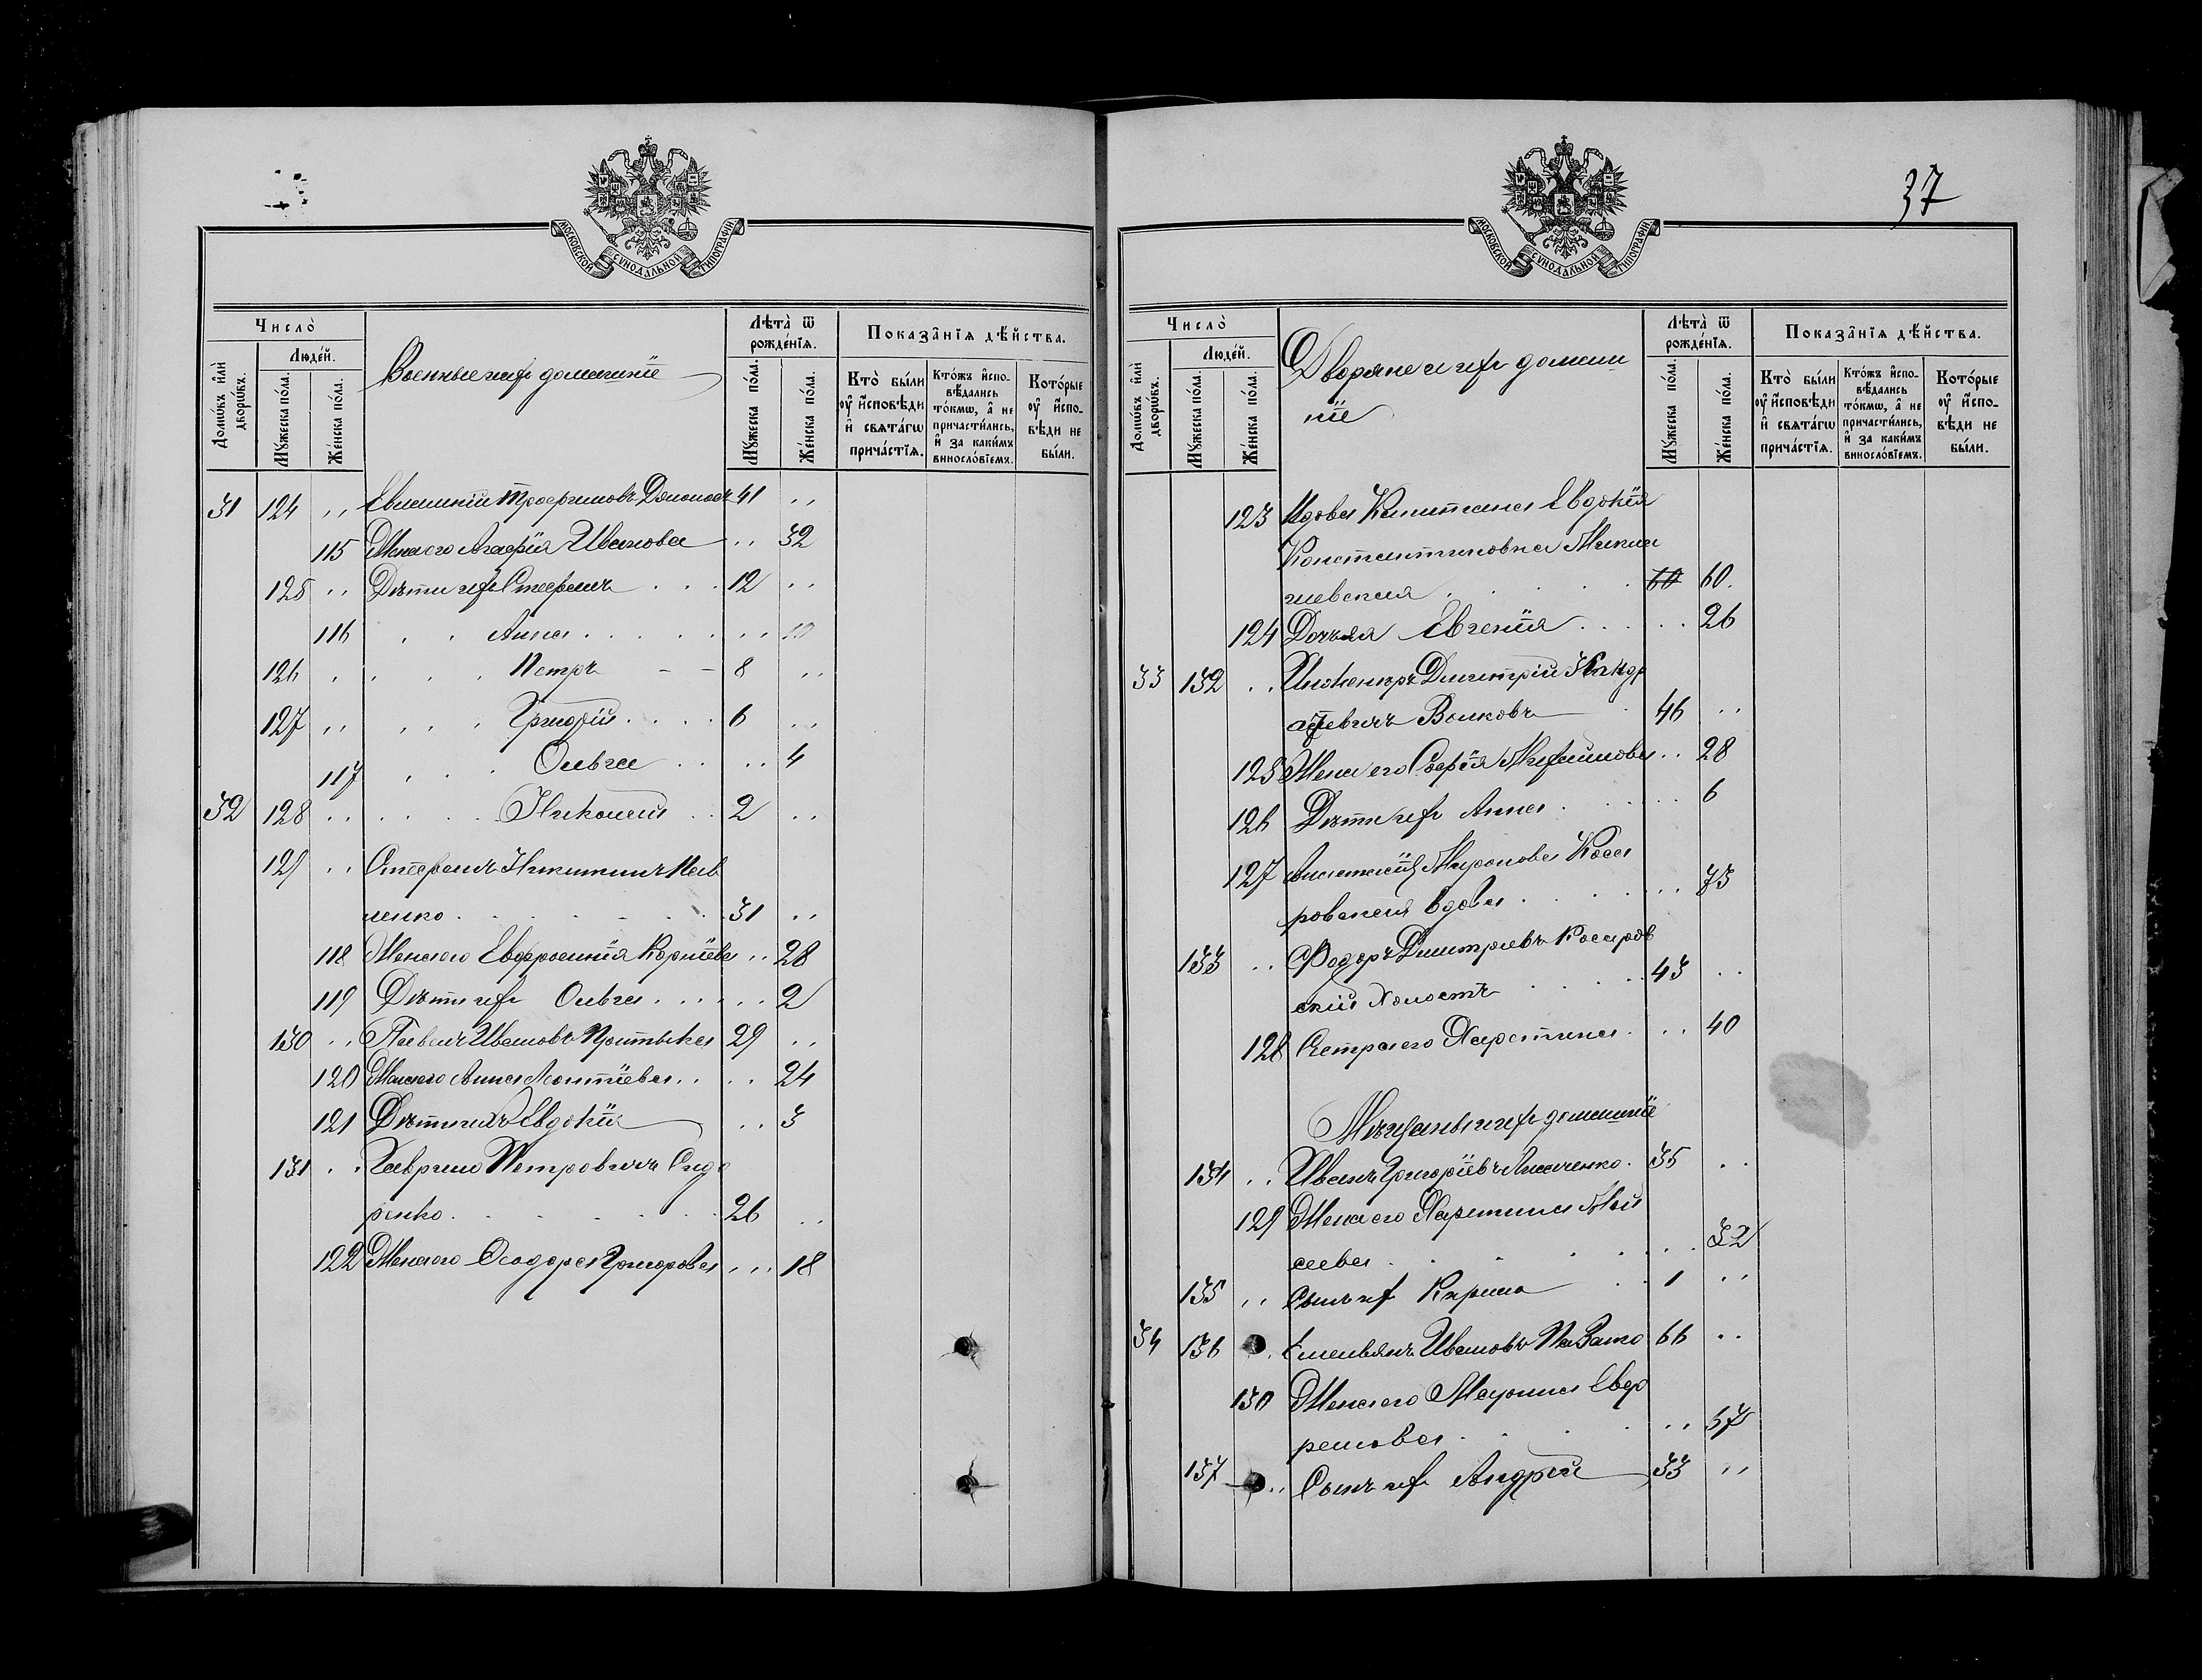 МОСКОВСКОЙ СѴНОДАЛЬНОЙ ТИПОГРАФІИ
Число̀
Людéй.
Домѡ́въ и҆лѝ дворѡ́въ.
Мꙋ́жеска по́ла.
Же́нска по́ла.
Военные и ихъ домашніе
Лѣта̀ ѿ рожде́нїѧ.
Мꙋ́жеска по́ла.
Же́нска по́ла.
Показа̑нїѧ дѣ́йства.
Кто̀ бы́ли оу҆ и҆сповѣ́ди и҆ свѧта́гѡ прича́стїѧ.
Кто́жъ и҆спо-вѣ́дались то́кмѡ, а҆ не причасти́лись, и҆ за каки́мъ винослóвїемъ.
Кото́рые оу҆ и҆спо-вѣ́ди не бы́ли.
31 124 " Трофимовъ 41 "
115 Жена его Агафія Иванова " 32
125 " Дѣти ихъ Стефанъ 12 "
116 Анна " 10
126 Петръ 8 "
127 " Григорій 6 "
117 Ольга " 4
32 128 " Николай 2 "
129 " Стефанъ Никитинъ Пав
ленко 31 "
118 Жена его Евфросинія Корніева " 28
119 Дѣти ихъ Ольга " 2
130 " Павелъ Ивановъ 29 "
120 Жена его Анна Леонтіева " 24
121 Дѣти ихъ Евдокія " 3
131 " Гавріилъ Петровичъ Сидо
ренко 26 "
122 Жена его Ѳеодора Григорова " 18
37
МОСКОВСКОЙ СѴНОДАЛЬНОЙ ТИПОГРАФІИ
Число̀
Людéй.
Домѡ́въ и҆лѝ дворѡ́въ.
Мꙋ́жеска по́ла.
Же́нска по́ла.
Дворяне и ихъ домаш
ніе
Лѣта̀ ѿ рожде́нїѧ.
Мꙋ́жеска по́ла.
Же́нска по́ла.
Показа̑нїѧ дѣ́йства.
Кто̀ бы́ли оу҆ и҆сповѣ́ди и҆ свѧта́гѡ прича́стїѧ.
Кто́жъ и҆спо-вѣ́дались то́кмѡ, а҆ не причасти́лись, и҆ за каки́мъ винослóвїемъ.
Кото́рые оу҆ и҆спо-вѣ́ди не бы́ли.
123 Вдова Капитана Евдокія
Константиновна
60 60.
124 Дочь ея Евгенія 26
33 132 " Инженеръ Димитрій
Волковъ 46 "
125 Жена его Софія Михайлова " 28
126 Дѣти ихъ Анна 6
127 Анастасія Миронова Коса
ровская вдова 73
133 " Ѳедоръ Димитріевъ Косаров
скій холостъ 43 "
128 Сестра его Харитина " 40
Мѣщаны и ихъ домашніе
134 " Иванъ Григоріевъ 35 "
129 Жена его Харитина Мои
сеева 32
135 " Сынъ ихъ Кирилъ 1 "
34 136 " Емельянъ Ивановъ 66 "
130 Жена его Марина
57
137 " Сынъ ихъ Андрей 33 "